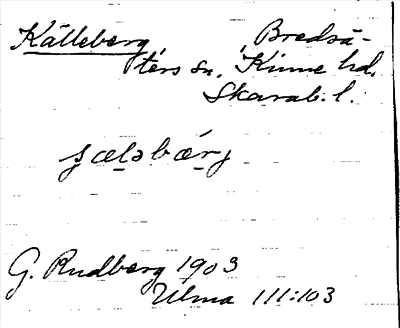 Källeberg, Bredsä-
ters sn. Kinne hd.
Skarab. l.
G. Rudberg 1903
Ulma 111:103